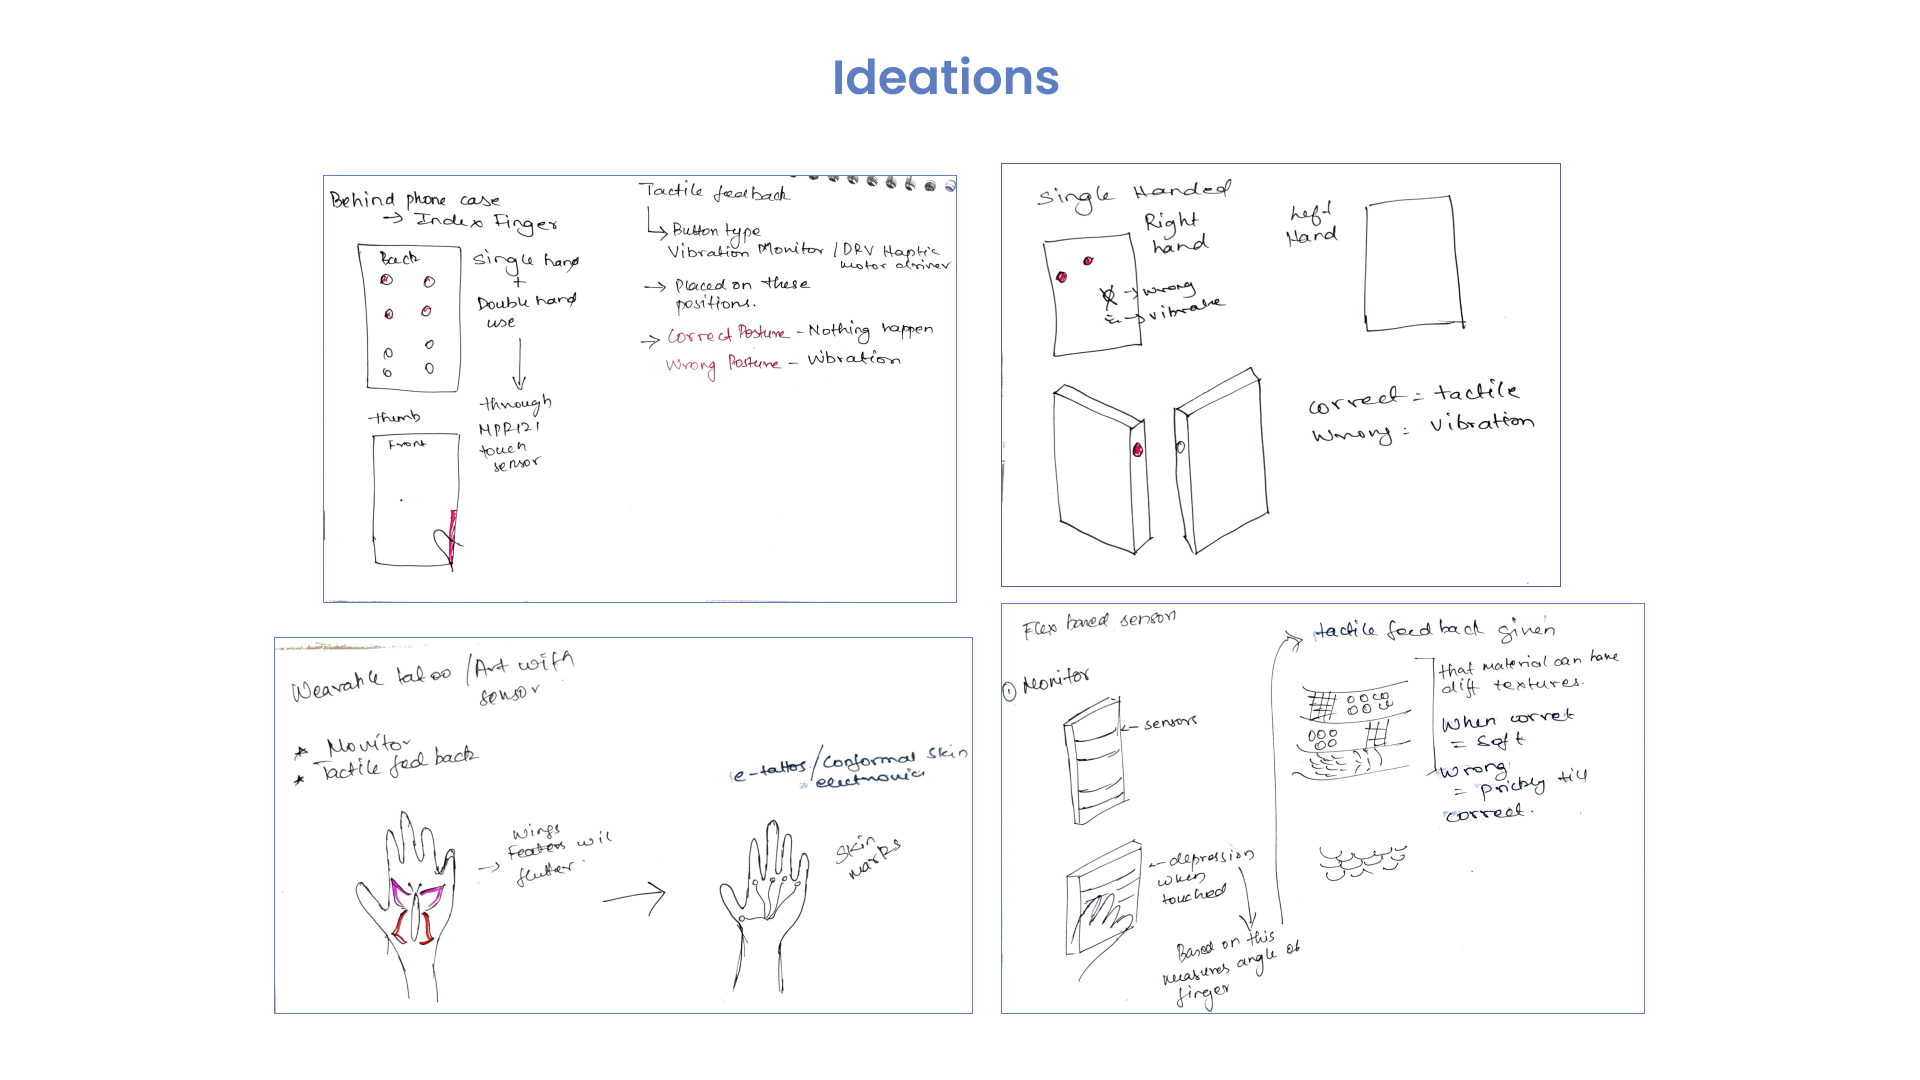 Ideations
Behind phone case
→ Index Finger
Back
Single hand
+
Double hand
use
through
MPR121
touch
sensor
thumb
Front
Tactile feedback
Button type
Vibration Monitor / DRV Haptic
motor driver
→ Placed on these
positions.
→ Correct Posture - Nothing happen
Wrong Posture - Vibration
Single Handed
Right
hand
→ wrong
→ vibrate
Left
Hand
correct = tactile
Wrong = vibration
Wearable tatoo / Art with
sensor
* Monitor
* Tactile feed back
→ Wings
will
flutter
e-tattos / Conformal skin
electronics
Skin
warps
Flex based sensor
① Monitor
← sensors
← depression
when
touched
Based on this
measures angle of
finger
tactile feed back given
that material can have
diff textures.
When correct
= Soft
Wrong
= Prickly till
correct.